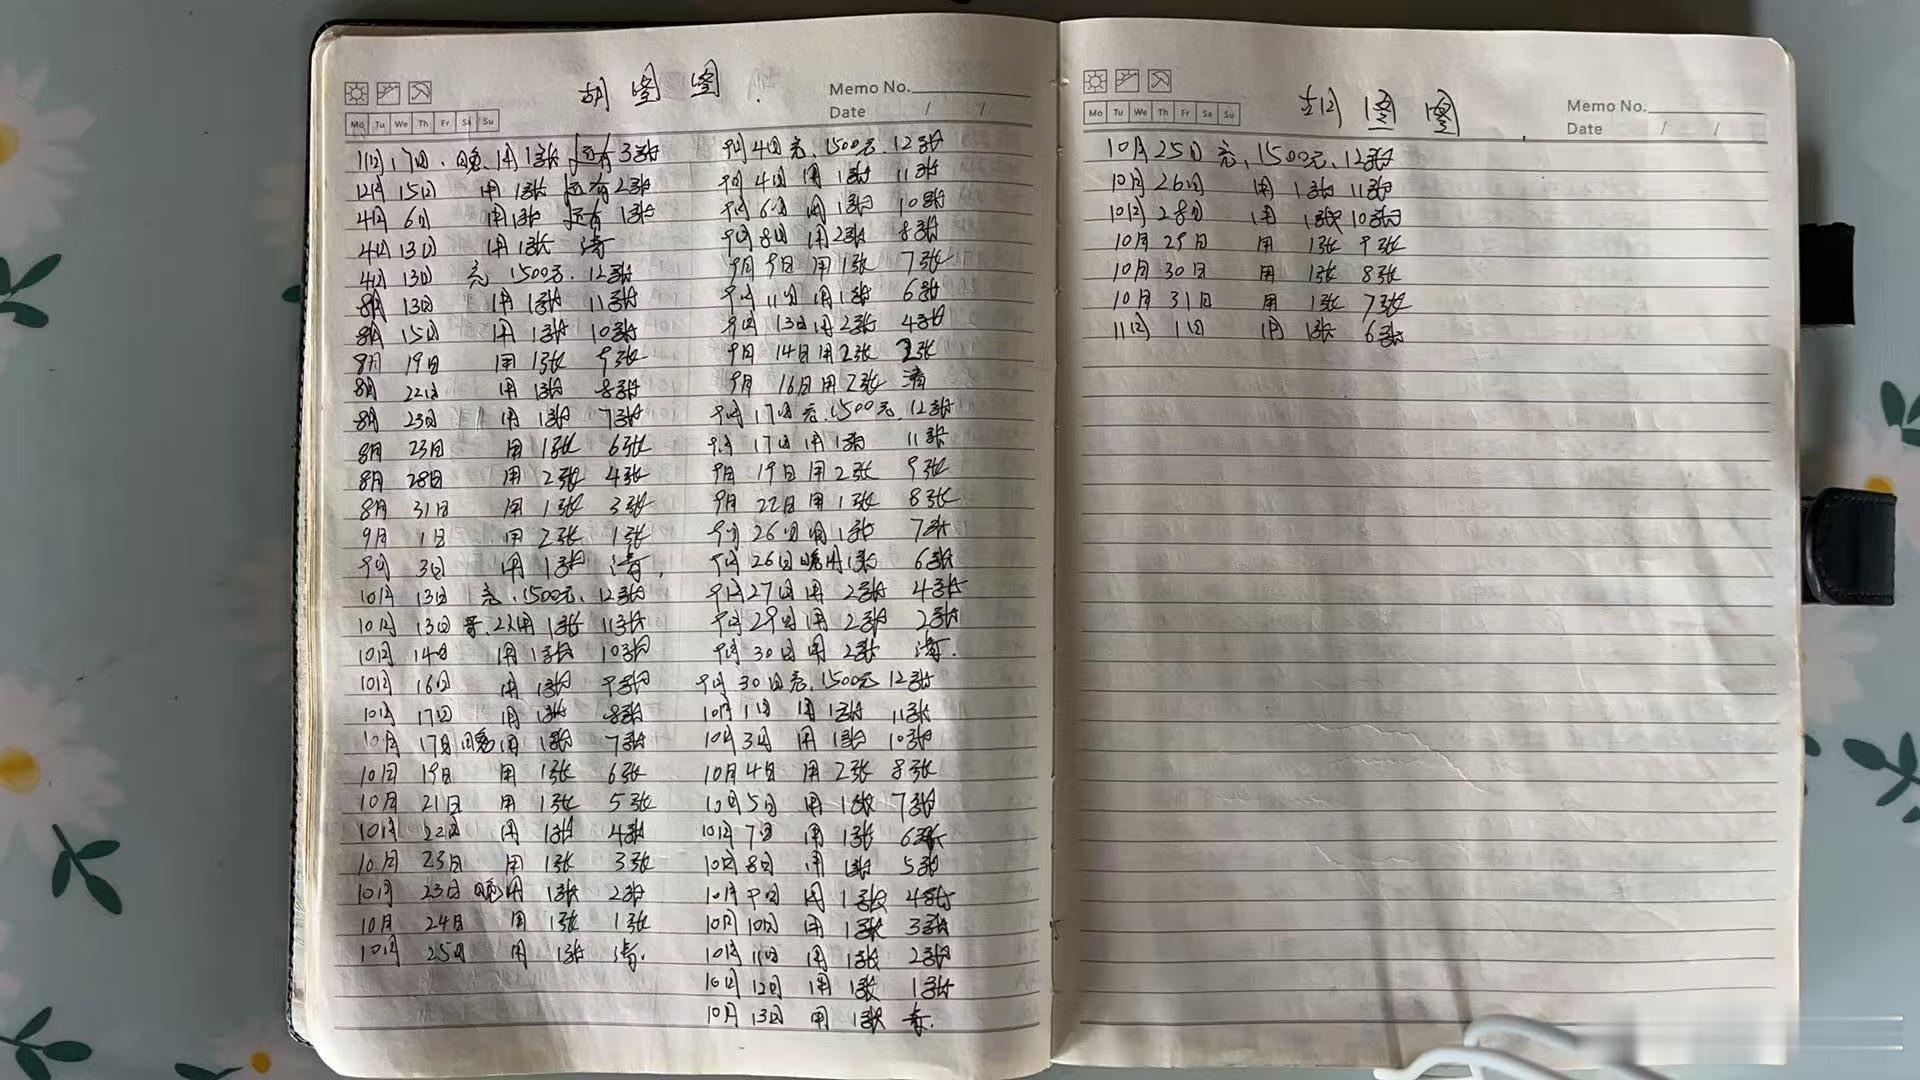 胡图图
Memo No.
Date / /
Mo Tu We Th Fr Sa Su
11月17日.晚.用1张还有3张
12月15日 用1张还有2张
4月6日 用1张 还有1张
4月13日 用1张 清
4月13日 充.1500元.12张
8月13日 用1张 11张
8月15日 用1张 10张
8月19日 用1张 9张
8月22日 用1张 8张
8月23日 用1张 7张
8月23日 用1张 6张
8月28日 用2张 4张
8月31日 用1张 3张
9月1日 用2张 1张
9月3日 用1张 清.
10月13日 充.1500元.12张
10月13日 哥.2人用1张 11张
10月14日 用1张 10张
10月16日 用1张 9张
10月17日 用1张 8张
10月17日晚用1张 7张
10月19日 用1张 6张
10月21日 用1张 5张
10月22日 用1张 4张
10月23日 用1张 3张
10月23日晚用1张 2张
10月24日 用1张 1张
10月25日 用1张 清.
9月4日充.1500元.12张
9月4日用1张 11张
9月6日用1张 10张
9月8日用2张 8张
9月9日用1张 7张
9月11日用1张 6张
9月13日用2张 4张
9月14日用2张 2张
9月16日用2张 清
9月17日充.1500元.12张
9月17日用1张 11张
9月19日用2张 9张
9月22日用1张 8张
9月26日用1张 7张
9月26日晚用1张 6张
9月27日用2张 4张
9月29日用2张 2张
9月30日用2张 清.
9月30日充.1500元 12张
10月1日用1张 11张
10月3日用1张 10张
10月4日用2张 8张
10月5日用1张 7张
10月7日用1张 6张
10月8日用1张 5张
10月9日用1张 4张
10月10日用1张 3张
10月11日用1张 2张
10月12日用1张 1张
10月13日用1张 清.
胡图图
Memo No.
Date / /
Mo Tu We Th Fr Sa Su
10月25日充.1500元.12张
10月26日 用1张 11张
10月28日 用1张 10张
10月29日 用1张 9张
10月30日 用1张 8张
10月31日 用1张 7张
11月1日 用1张 6张